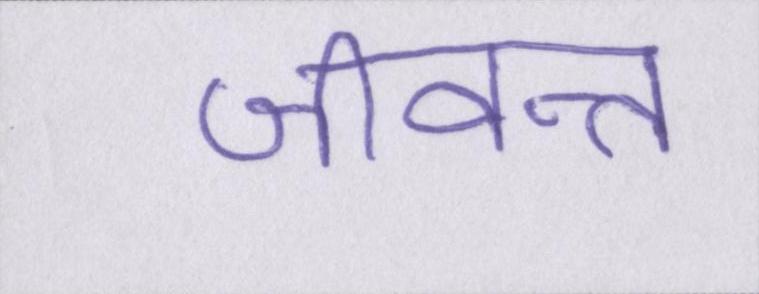 जीवन्त